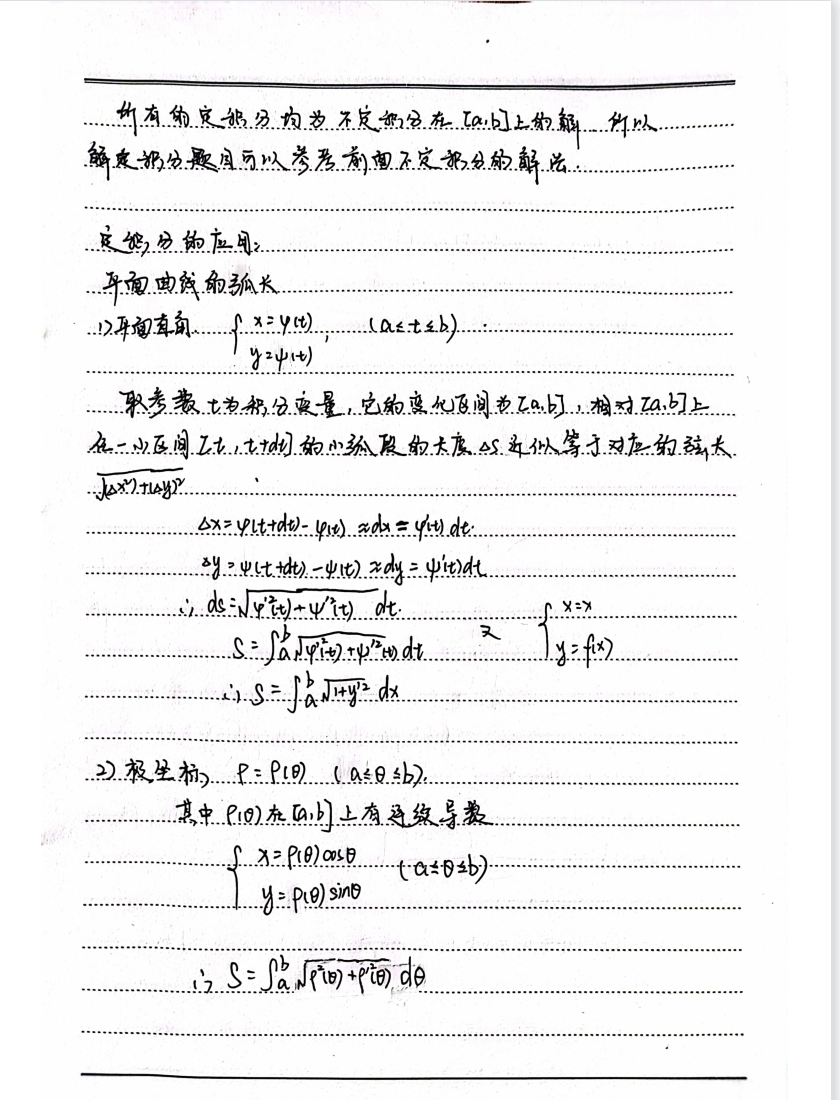 所有的定积分均为不定积分在[a,b]上的解 所以
解定积分题目可以参考前面不定积分的解法.
定积分的应用:
平面曲线的弧长
1)平面直角 { x=φ(t)
y=ψ(t) , (a≤t≤b)
取参数t为积分变量,它的变化区间为[a,b],相对[a,b]上
任一小区间[t,t+dt]的小弧段的长度△s近似等于对应的弦长
√(△x²)+(△y)²
△x=φ(t+dt)-φ(t)≈dx=φ'(t)dt.
△y=ψ(t+dt)-ψ(t)≈dy=ψ'(t)dt
∴ ds=√φ'²(t)+ψ'²(t) dt.
S=∫ₐᵇ√φ'²(t)+ψ'²(t) dt 又 { x=x
y=f(x)
∴ S=∫ₐᵇ√1+y'² dx
2)极坐标, ρ=ρ(θ) (a≤θ≤b).
其中ρ(θ)在[a,b]上有连续导数
{ x=ρ(θ)cosθ
y=ρ(θ)sinθ (a≤θ≤b)
∴ S=∫ₐᵇ√ρ²(θ)+ρ'²(θ) dθ